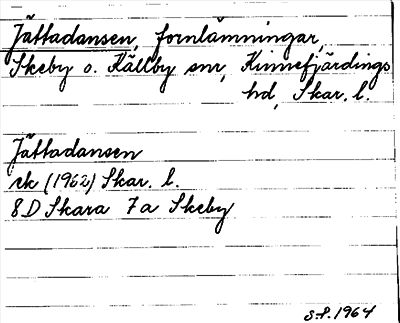 Jättadansen, fornlämningar,
Skeby o. Källby snr, Kinnefjärdings
hd, Skar. l.
Jättadansen
ek (1962) Skar. l.
8D Skara 7a Skeby
S.P. 1964